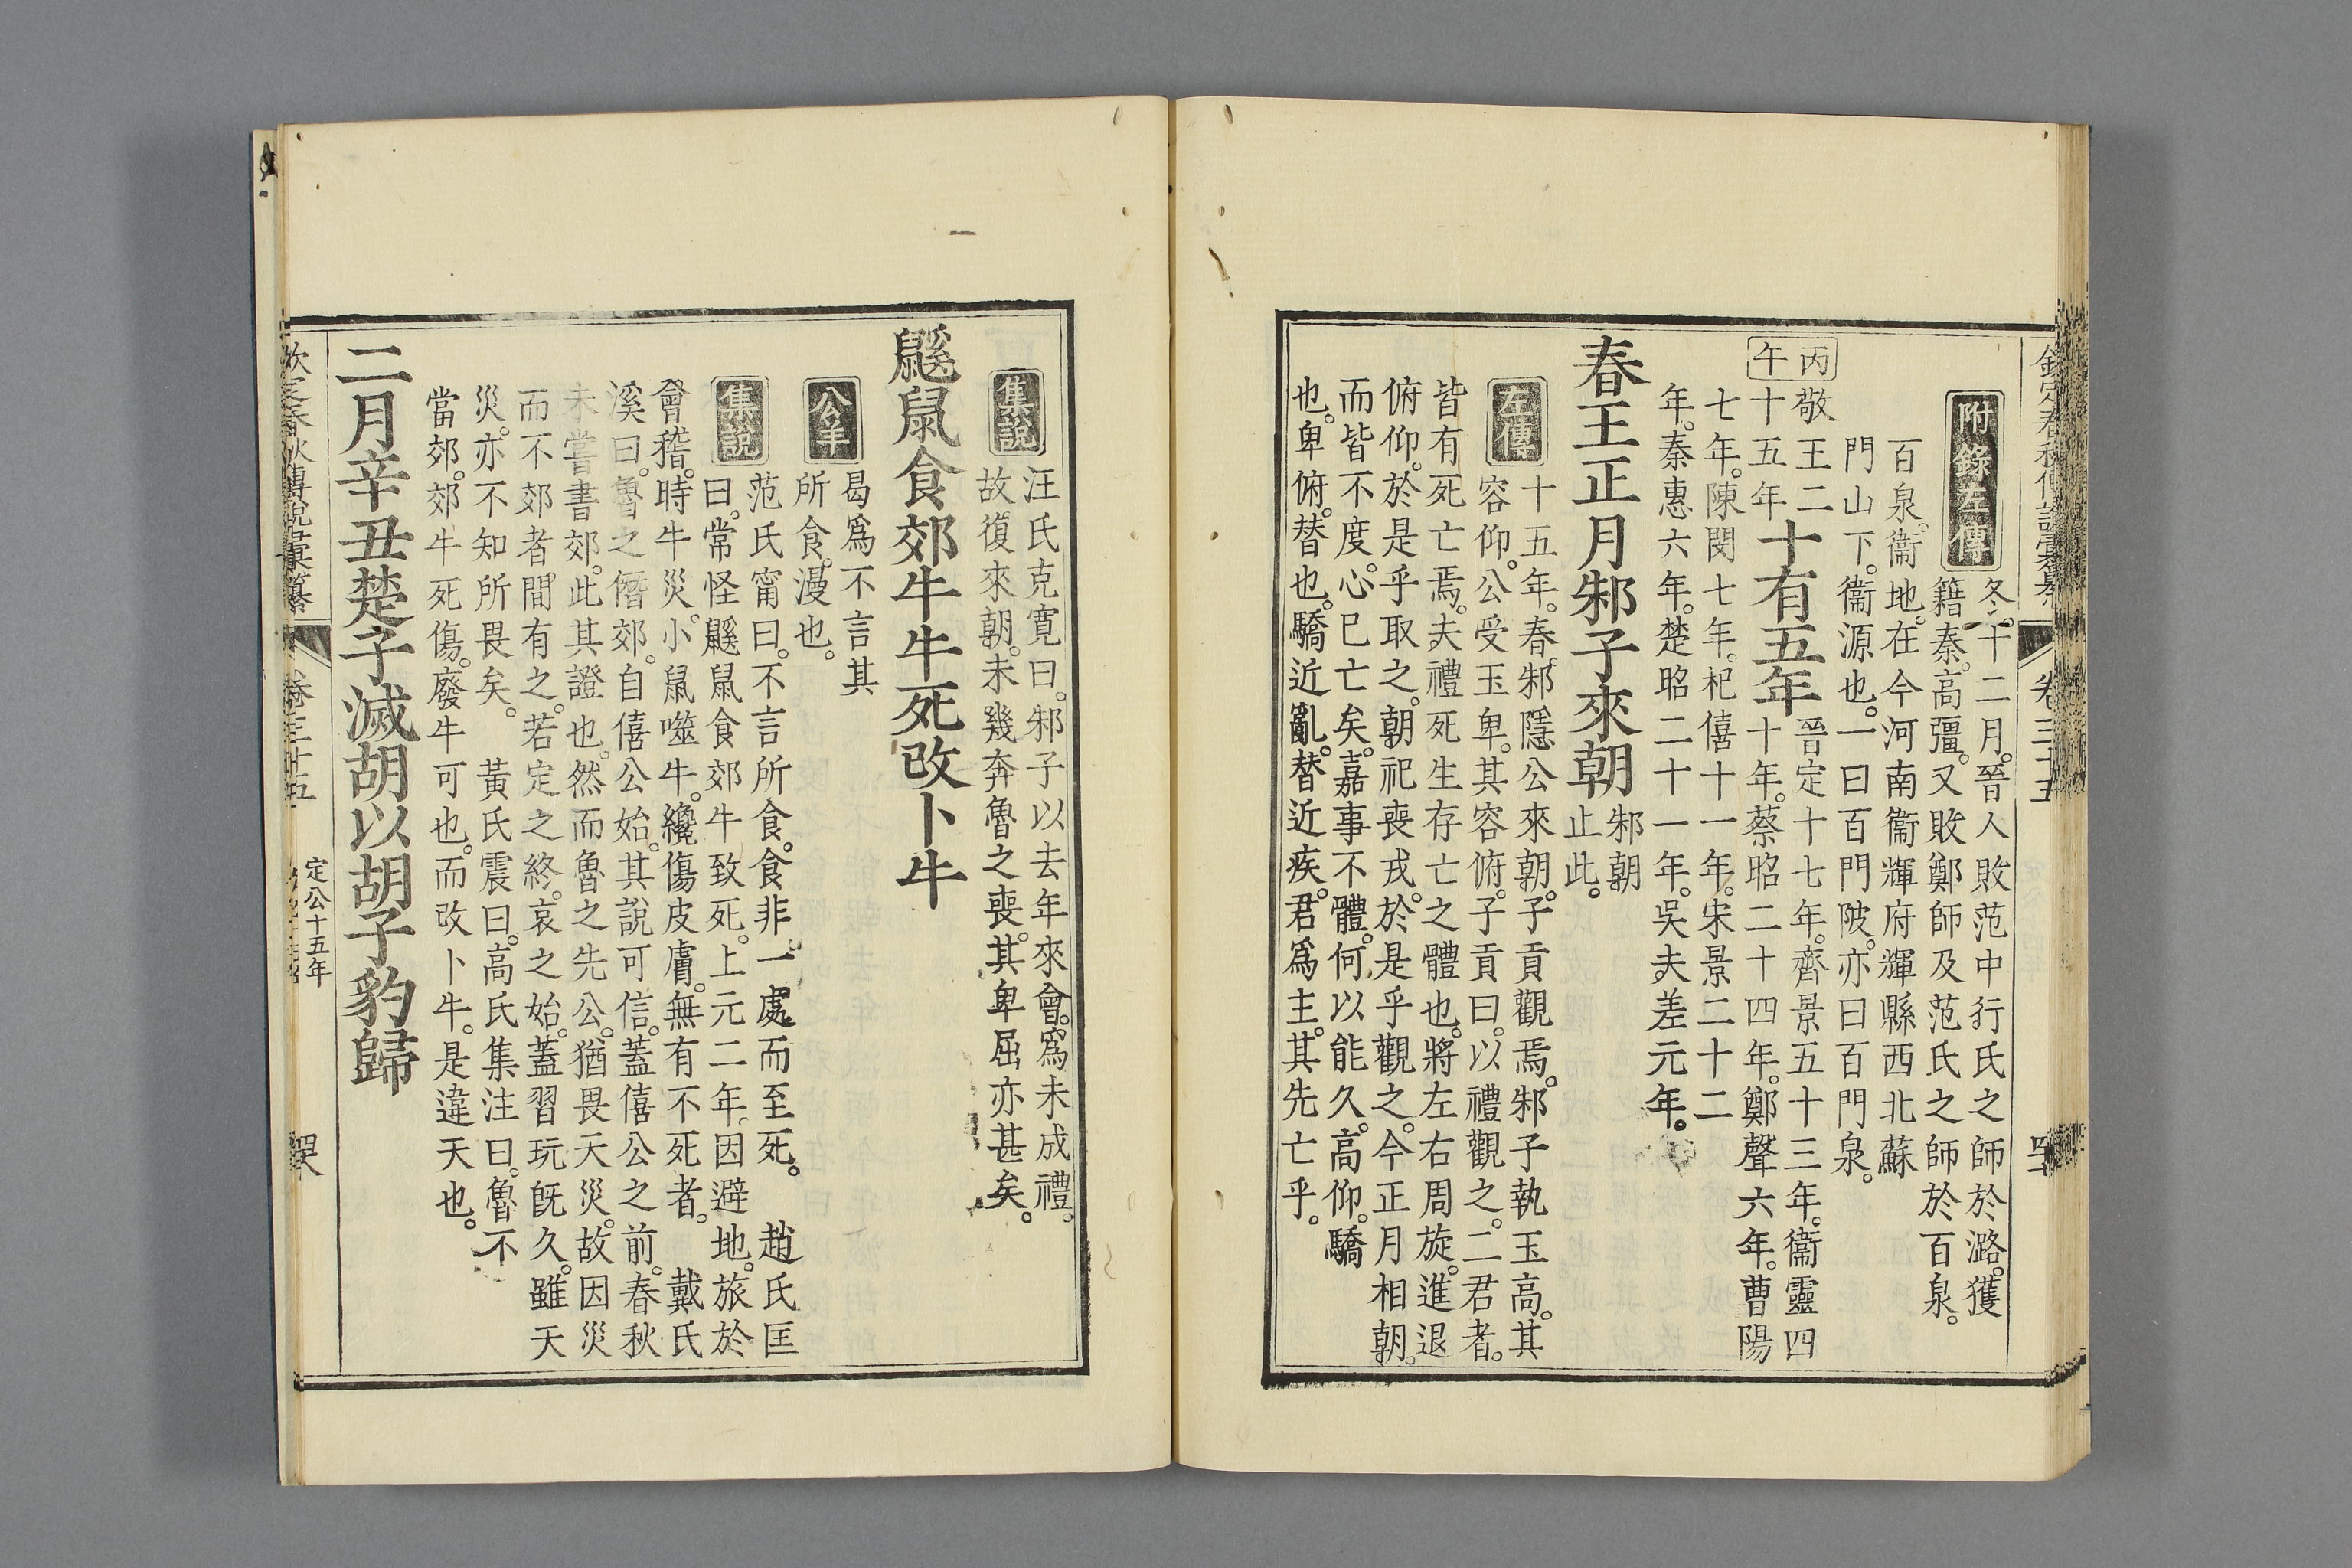 附錄左傳 冬。十二月。晉人敗范中行氏之師於潞。獲
籍秦。高彊。又敗鄭師及范氏之師於百泉。
百泉。衞地。在今河南衞輝府輝縣西北蘇
門山下。衞源也。一曰百門陂。亦曰百門泉。
丙午
敬王二十五年
十有五年
晉定十七年。齊景五十三年。衞靈四
十年。蔡昭二十四年。鄭聲六年。曹陽
七年。陳閔七年。杞僖十一年。宋景二十二
年。秦惠六年。楚昭二十一年。吳夫差元年。
春王正月邾子來朝
邾朝
止此。
左傳 十五年。春。邾隱公來朝。子貢觀焉。邾子執玉高。其
容仰。公受玉卑。其容俯。子貢曰。以禮觀之。二君者。
皆有死亡焉。夫禮死生存亡之體也。將左右周旋。進退
俯仰。於是乎取之。朝祀喪戎。於是乎觀之。今正月相朝。
而皆不度。心已亡矣。嘉事不體。何以能久。高仰。驕
也。卑俯。替也。驕近亂。替近疾。君爲主。其先亡乎。
集說 汪氏克寬曰。邾子以去年來會。爲未成禮。
故復來朝。未幾奔魯之喪。其卑屈亦甚矣。
鼷鼠食郊牛牛死改卜牛
公羊 曷爲不言其
所食。漫也。
集說 范氏甯曰。不言所食。食非一處而至死。 趙氏匡
曰。常怪鼷鼠食郊牛致死。上元二年。因避地。旅於
會稽。時牛災。小鼠噬牛。纔傷皮膚。無有不死者。 戴氏
溪曰。魯之僭郊。自僖公始。其說可信。蓋僖公之前。春秋
未嘗書郊。此其證也。然而魯之先公。猶畏天災。故因災
而不郊者間有之。若定之終。哀之始。蓋習玩旣久。雖天
災。亦不知所畏矣。 黃氏震曰。高氏集注曰。魯不
當郊。郊牛死傷。廢牛可也。而改卜牛。是違天也。
二月辛丑楚子滅胡以胡子豹歸
欽定春秋傳說彙纂
卷三十五
定公十五年